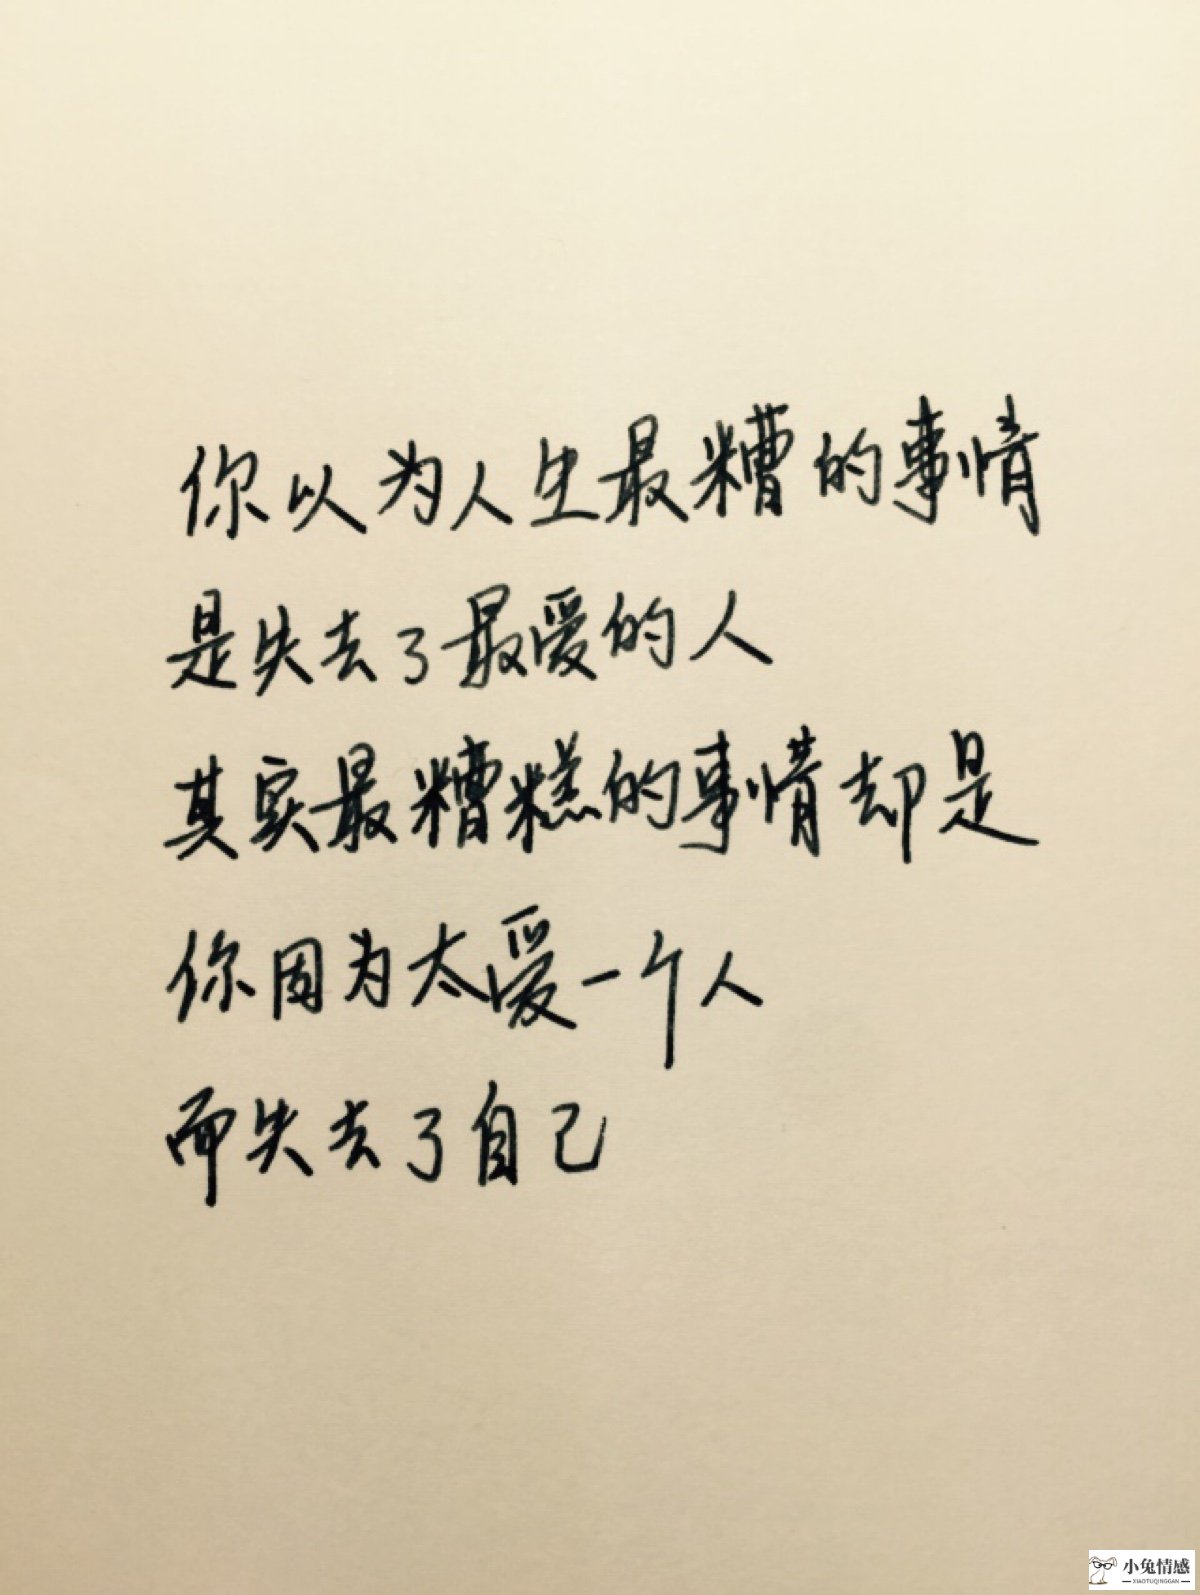 你以为人生最糟的事情
是失去了最爱的人
其实最糟糕的事情却是
你因为太爱一个人
而失去了自己
小兔情感
XIAOTUQINGGAN